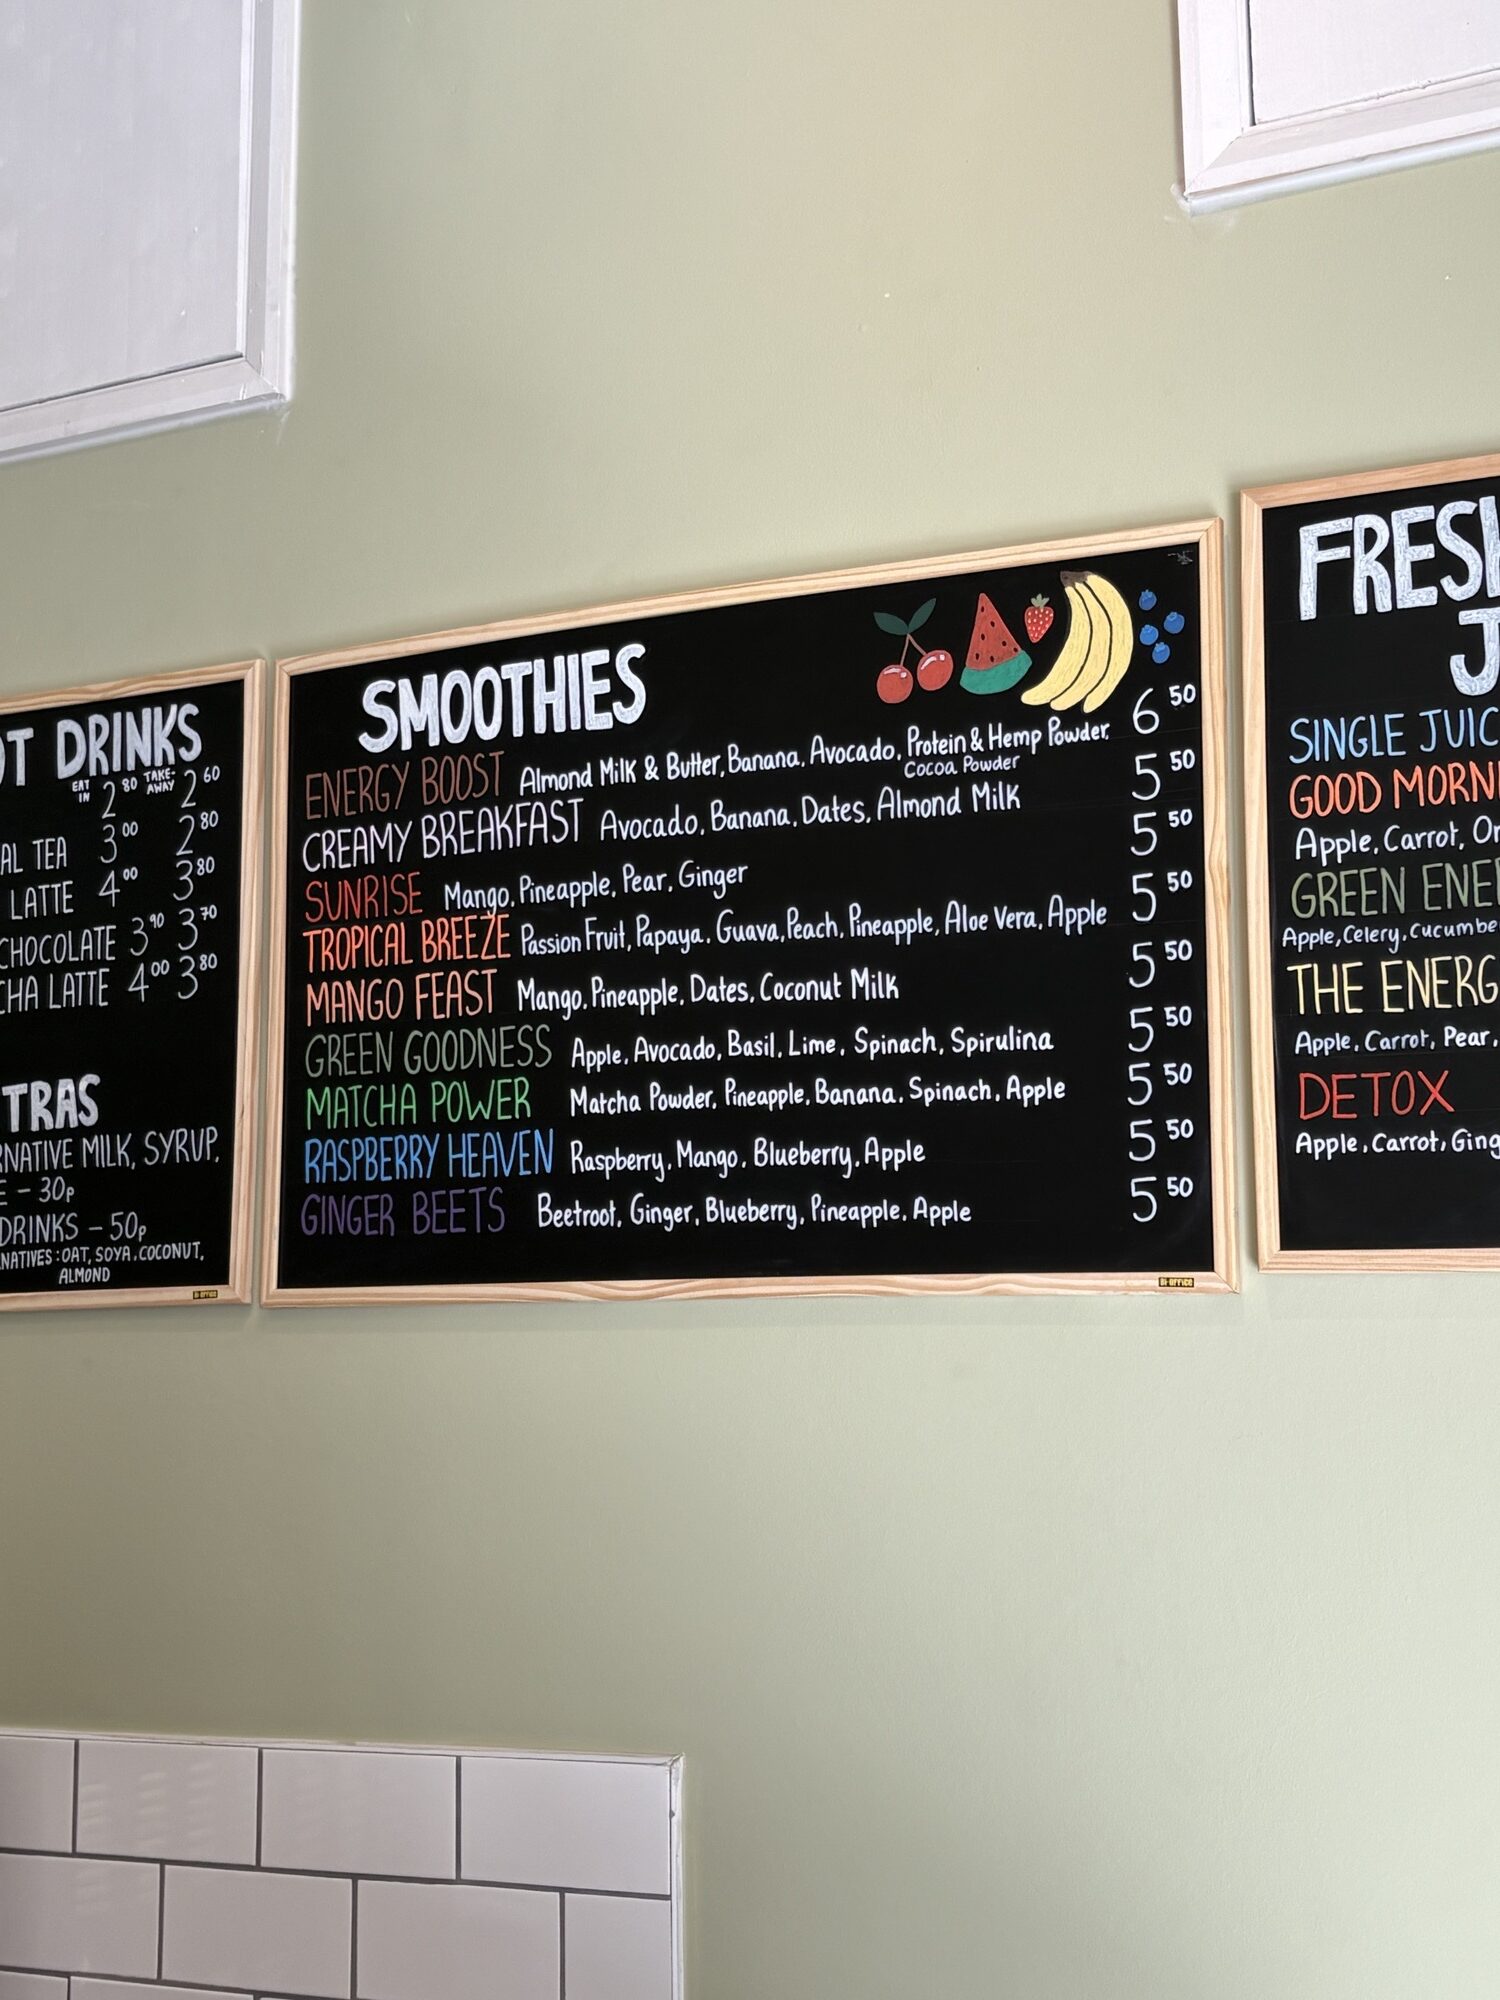 DRINKS
EAT IN 2 80 TAKE-AWAY 2 60
TEA 3 00 2 80
LATTE 4 00 3 80
CHOCOLATE 3 90 3 70
LATTE 4 00 3 80
MILK, SYRUP,
- 30p
DRINKS - 50p
: OAT, SOYA, COCONUT,
ALMOND
Bi-OFFICE
SMOOTHIES
ENERGY BOOST Almond Milk & Butter, Banana, Avocado, Protein & Hemp Powder, 6 50
Cocoa Powder
CREAMY BREAKFAST Avocado, Banana, Dates, Almond Milk 5 50
SUNRISE Mango, Pineapple, Pear, Ginger 5 50
TROPICAL BREEZE Passion Fruit, Papaya, Guava, Peach, Pineapple, Aloe Vera, Apple 5 50
MANGO FEAST Mango, Pineapple, Dates, Coconut Milk 5 50
GREEN GOODNESS Apple, Avocado, Basil, Lime, Spinach, Spirulina 5 50
MATCHA POWER Matcha Powder, Pineapple, Banana, Spinach, Apple 5 50
RASPBERRY HEAVEN Raspberry, Mango, Blueberry, Apple 5 50
GINGER BEETS Beetroot, Ginger, Blueberry, Pineapple, Apple 5 50
Bi-OFFICE
SINGLE
GOOD
Apple, Carrot,
GREEN
Apple, Celery,
THE
Apple, Carrot, Pear,
DETOX
Apple, Carrot,